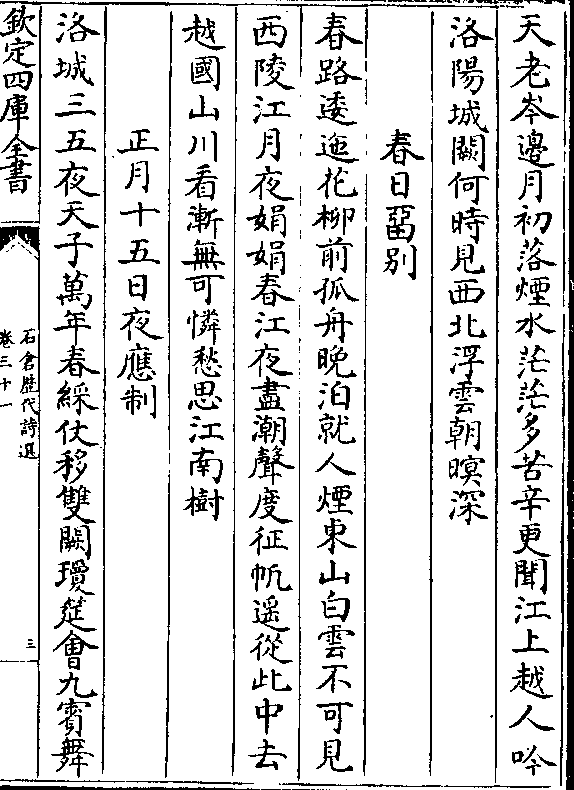 天老岑邊月初落煙水茫茫多苦辛更聞江上越人吟
洛陽城闕何時見西北浮雲朝暝深
春日留别
春路逶迤花柳前孤舟晚泊就人煙東山白雲不可見
西陵江月夜娟娟春江夜盡潮聲度征帆遥從此中去
越國山川看漸無可憐愁思江南樹
正月十五日夜應制
洛城三五夜天子萬年春綵仗移雙闕瓊筵會九賓舞
欽定四庫全書
石倉歴代詩選
卷三十一
三